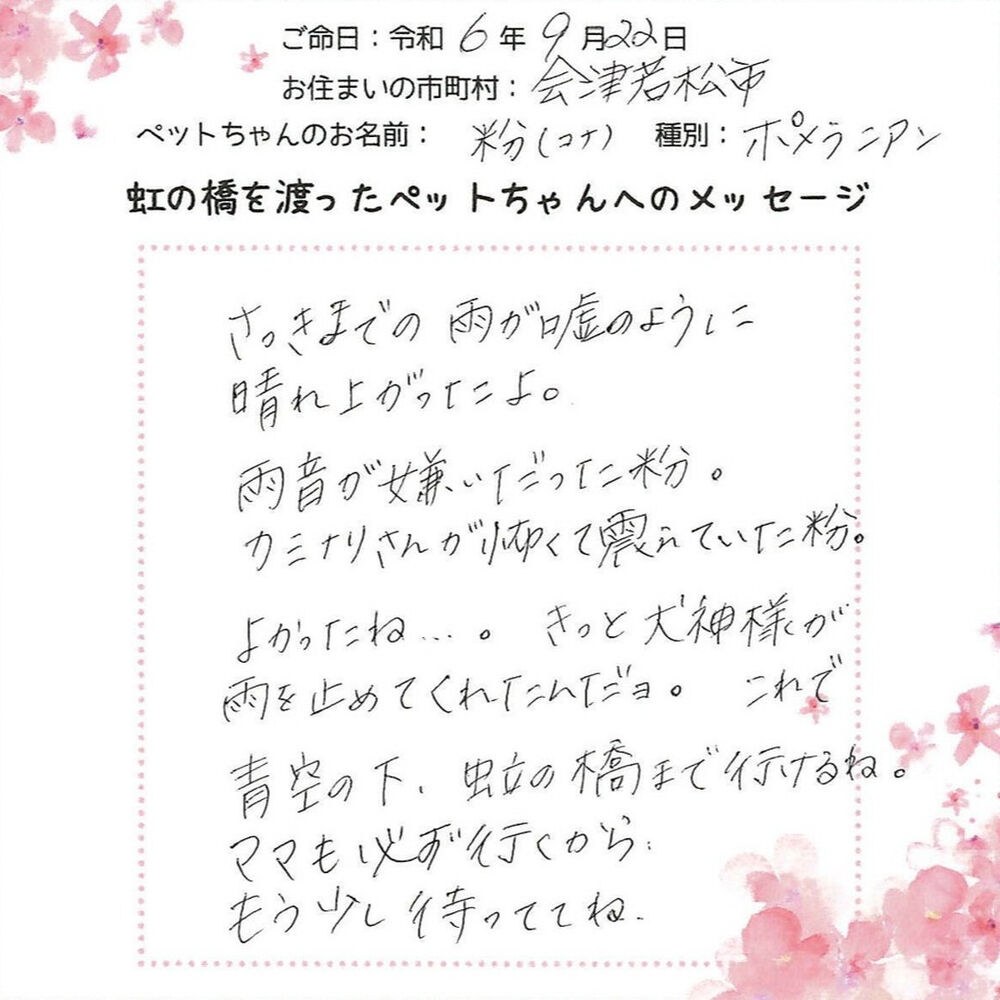 ご命日：令和 6 年 9 月22日
お住まいの市町村：会津若松市
ペットちゃんのお名前： 粉(コナ) 種別：ポメラニアン
虹の橋を渡ったペットちゃんへのメッセージ
さっきまでの 雨が嘘のように
晴れ上がったよ。
雨音が嫌いだった粉。
カミナリさんが怖くて震えていた粉。
よかったね…。 きっと犬神様が
雨を止めてくれたんだヨ。 これで
青空の下、虹の橋まで行けるね。
ママも必ず行くから、
もう少し待っててね.